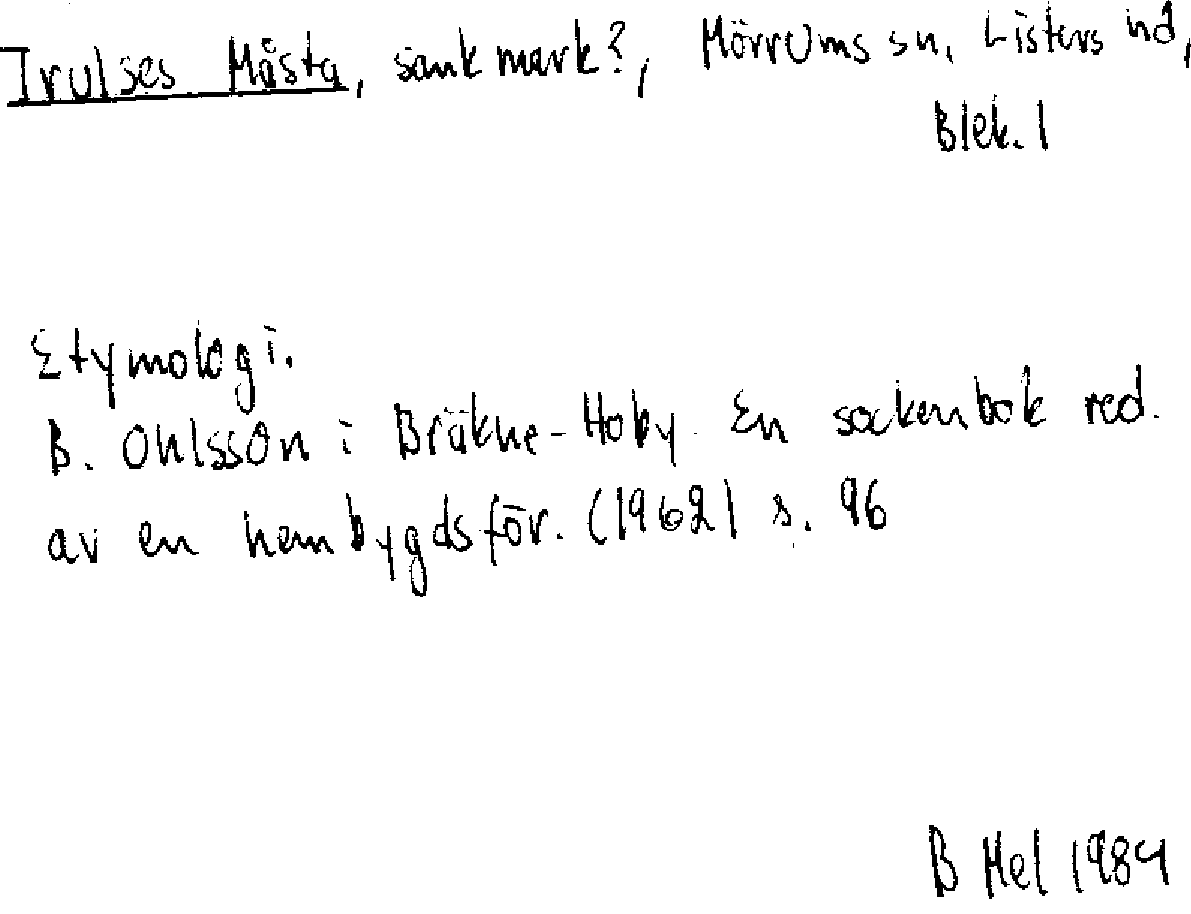 Trulses Måsta, sank mark?, Mörrums sn, Listers hd,
Blek. l
Etymologi.
B. Ohlsson i Bräkne-Hoby. En sockenbok red.
av en hembygdsför. (1962) s. 96
B Mel 1984